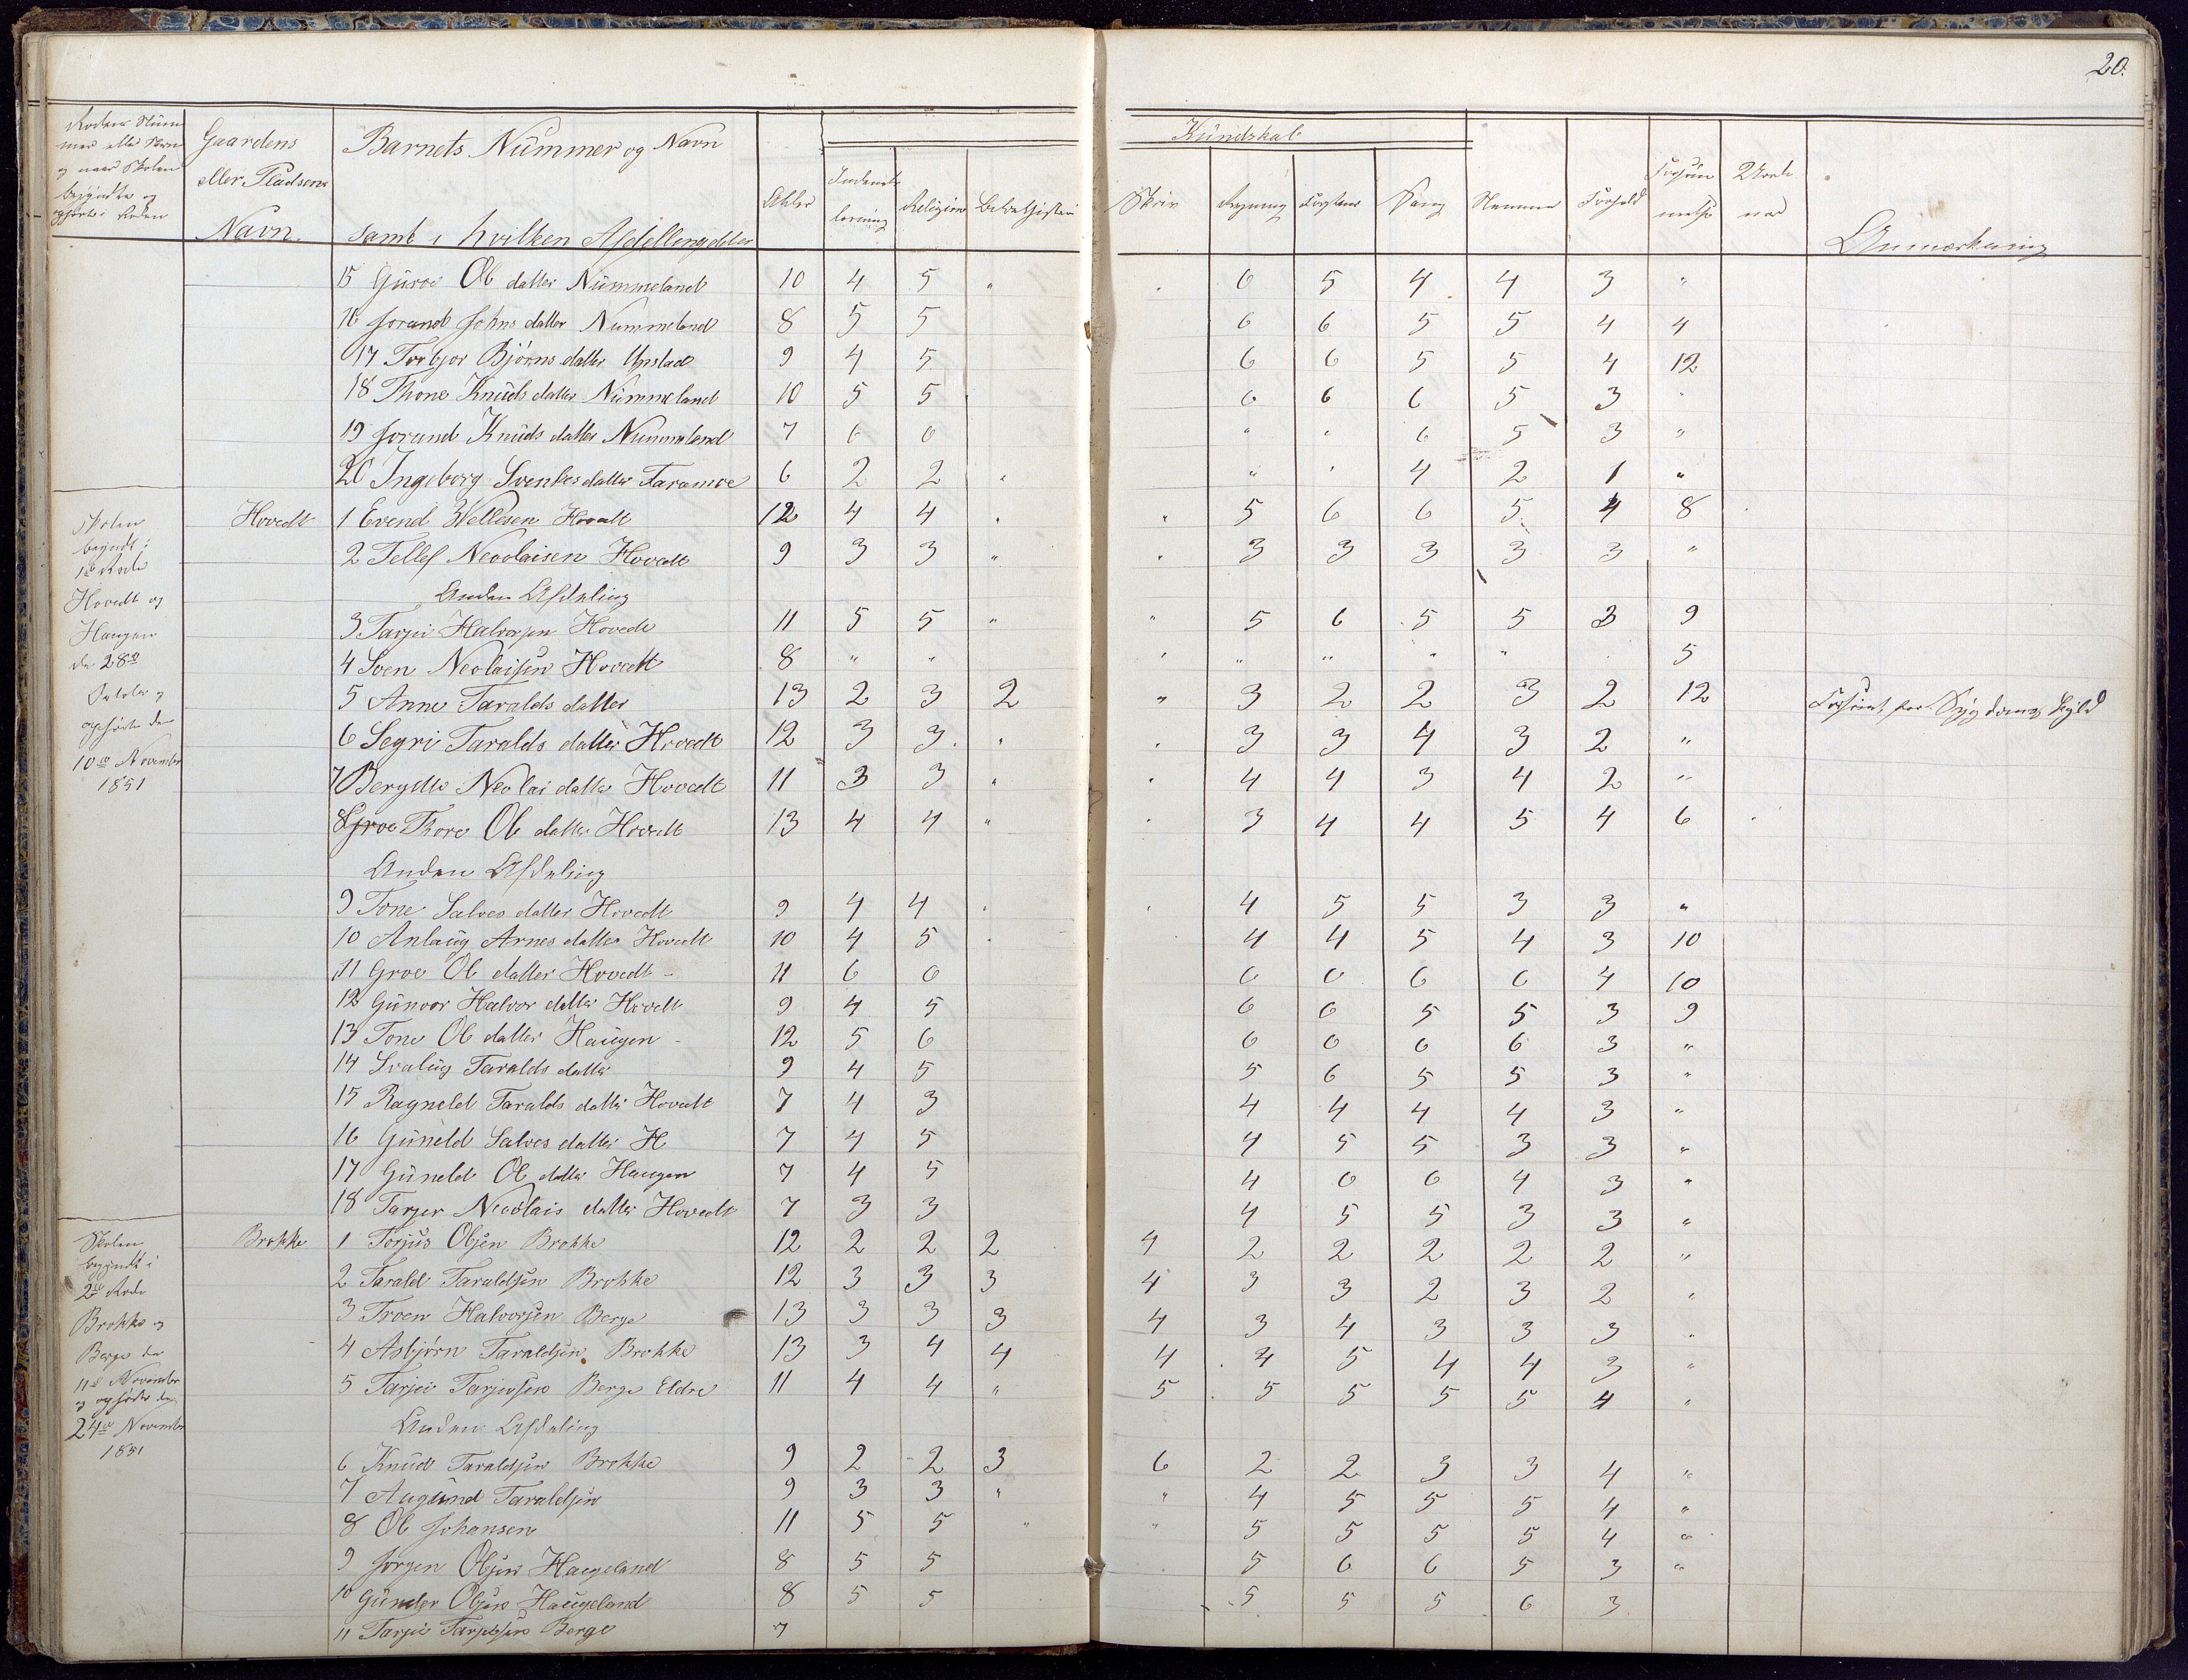 20.
Kundskab
Gaardens eller Pladsens Navn.
Barnets Nummer og Navn samt i hvilken Afdelling
Alder
Religion
Skriv
Regning
Sang
Nemme
Forhold
Anmærkning
15 Guroe Ol datter Nummeland 10 4 5 " 6 5 4 4 3 "
16 Jorand Johns datter Nummeland 8 5 5 6 6 5 5 4 4
17 Torbjor Bjørns datter Upstad 9 4 5 6 6 5 5 4 12
18 Thone Knuds datter Nummeland 10 5 5 6 6 6 5 3 "
19 Jorand Knuds datter Nummeland 7 6 6 " " 6 5 3 "
20 Ingeborg Svenkes datter Faramoe 6 2 2 " " " 4 2 1 "
Skolen begyndt i 1te Rode Hovedt og Haugen de 28de October og ophørte den 10de November 1851
Hovedt
1 Evend Wellesen Hovedt 12 4 4 " " 5 6 6 5 4 8
2 Tellef Neoolaisen Hovedt 9 3 3 " " 3 3 3 3 3 "
Anden Afdeling
3 Tarjei Halvorsen Hovedt 11 5 5 " " 5 6 5 5 3 9
4 Sven Neolaisen Hovedt 8 " " " " " " " 5
5 Anne Taralds datter 13 2 3 2 " 3 2 2 3 2 12 Forsømt for Sygdoms Skyld
6 Segri Taralds datter Hovedt 12 3 3 " " 3 3 4 3 2 "
7 Bergdte Neolai datter Hovedt 11 3 3 " " 4 4 3 4 2 "
8 Groe Thore Ol datter Hovedt 13 4 4 " " 3 4 4 5 4 6
Anden Afdeling
9 Tone Salves datter Hovedt 9 4 4 " " 4 5 5 3 3 "
10 Anlaug Arnes datter Hovedt 10 4 5 " 4 4 5 4 3 10
11 Groe Ol datter Hovedt 11 6 6 6 6 6 6 4 10
12 Gunvor Halvor datter Hovedt 9 4 5 6 6 5 5 3 9
13 Tone Ol datter Haugen 12 5 6 6 6 6 6 3 "
14 Svalug Taralds datter 9 4 5 5 6 5 5 3 "
15 Ragneld Taralds datter Hovedt 7 4 3 4 4 4 4 3 "
16 Guneld Salves datter H 7 4 5 4 5 5 3 3 "
17 Guneld Ol datter Haugen 7 4 5 4 6 6 4 3 "
18 Tarjer Neoolais datter Hovedt 7 3 3 4 5 5 3 3 "
Skolen begyndt i 2de Rode Brokke og Berge de 11te November og ophørte den 24de November 1851
Brokke
1 Torjus Olsen Brokke 12 2 2 2 4 2 2 2 2 2 "
2 Tarald Taraldsen Brokke 12 3 3 3 4 3 3 2 3 2 "
3 Troen Halvorsen Berge 13 3 3 3 4 3 4 3 3 3 "
4 Asbjørn Taraldsen Brokke 13 3 4 4 4 4 5 4 4 3 "
5 Tarjei Tarjeisen Berge Eldre 11 4 4 " 5 5 5 5 5 4 "
Anden Afdeling
6 Knud Taraldsen Brokke 9 2 2 3 6 2 2 3 3 4 "
7 Augund Taraldsen 9 3 3 " " 4 5 5 5 4 "
8 Ol Johansen 11 5 5 " " 5 5 5 5 4 "
9 Jørgen Olsen Haugeland 8 5 5 5 6 6 5 3 "
10 Gunder Olsen Haugeland 8 5 5 5 5 5 6 3
11 Tarjei Tarjeisen Berge 7